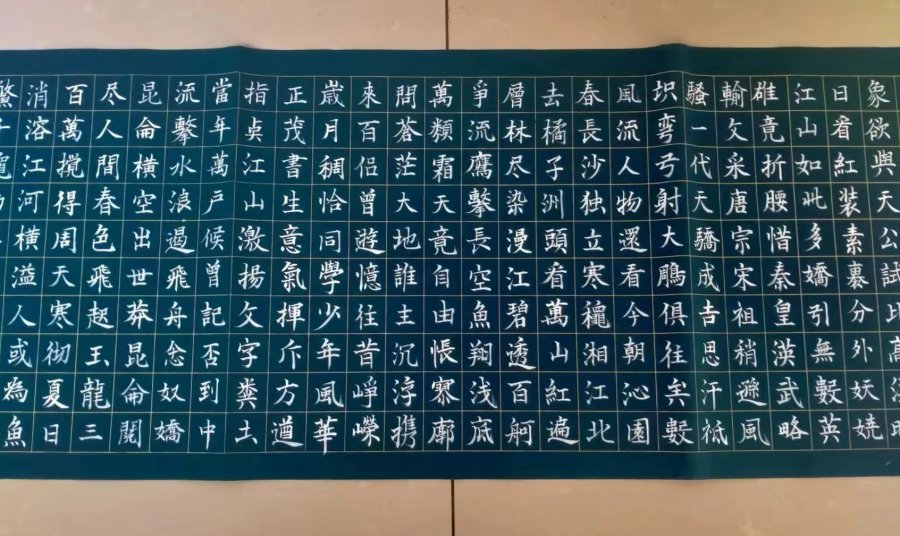 象欲與天公試比高
日看紅装素裹分外妖娆
江山如此多嬌引無數英
雄竟折腰惜秦皇漢武略
輸文采唐宗宋祖稍遜風
騷一代天驕成吉思汗祗
识弯弓射大鵰俱往矣數
風流人物還看今朝沁園
春長沙独立寒穐湘江北
去橘子洲頭看萬山紅遍
層林尽染漫江碧透百舸
爭流鷹擊長空魚翔浅底
萬類霜天竟自由悵寥廓
問蒼茫大地誰主沉浮携
來百侣曾遊憶往昔崢嶸
嵗月稠恰同學少年風華
正茂書生意氣揮斥方遒
指奌江山激揚文字糞土
當年萬户候曾記否到中
流擊水浪遏飛舟念奴嬌
昆侖橫空出世莽昆侖閲
尽人間春色飛起玉龍三
百萬攪得周天寒彻夏日
消溶江河橫溢人或為魚